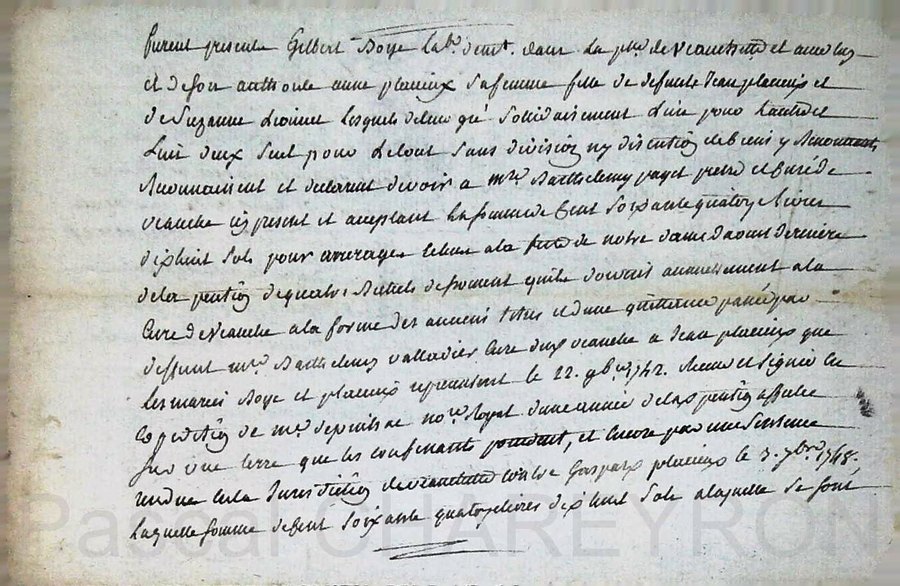 furent presents Gilbert Boye lab.r demt. dans la p.sse de veauche et avec luy
et de son authorité anne plancieux sa femme fille de defunts Jean plancieux et
de Suzanne lesquels de leur gré solidairement l'un pour l'autre et
l'un deux seul pour le tout sans division ny discution de biens y Renonceants
Reconnaissent et declarent devoir a m.re Barthelemy payet pretre et curé de
veauche icy present et acceptant la somme de Cent soixante quatorze livres
dixhuit sols pour arrerages echus a la fete de notre dame daoust derniere
de la pention de quatre Bichets de froment quils doivent annuellement a la
Cure de veauche a la forme des anciens titres et d'une quittance passée par
deffunt m.re Barthelemy valladier Cure dud veauche a Jean plancieux que
les mariés Boye et plancieux representent le 22. 9bre 1742. Recue et signée En
Expedition de m.e no.re Royal d'une année de lad pention affectée
sur une terre que les confinants joindent, et Encore par une Sentence
rendue en la Jurisdiction de veauche contre Gaspard plancieux le 7. 9bre 1748.
Laquelle somme de Cent soixante quatorze livres dixhuit sols a laquelle se sont
Pascal CHAREYRON